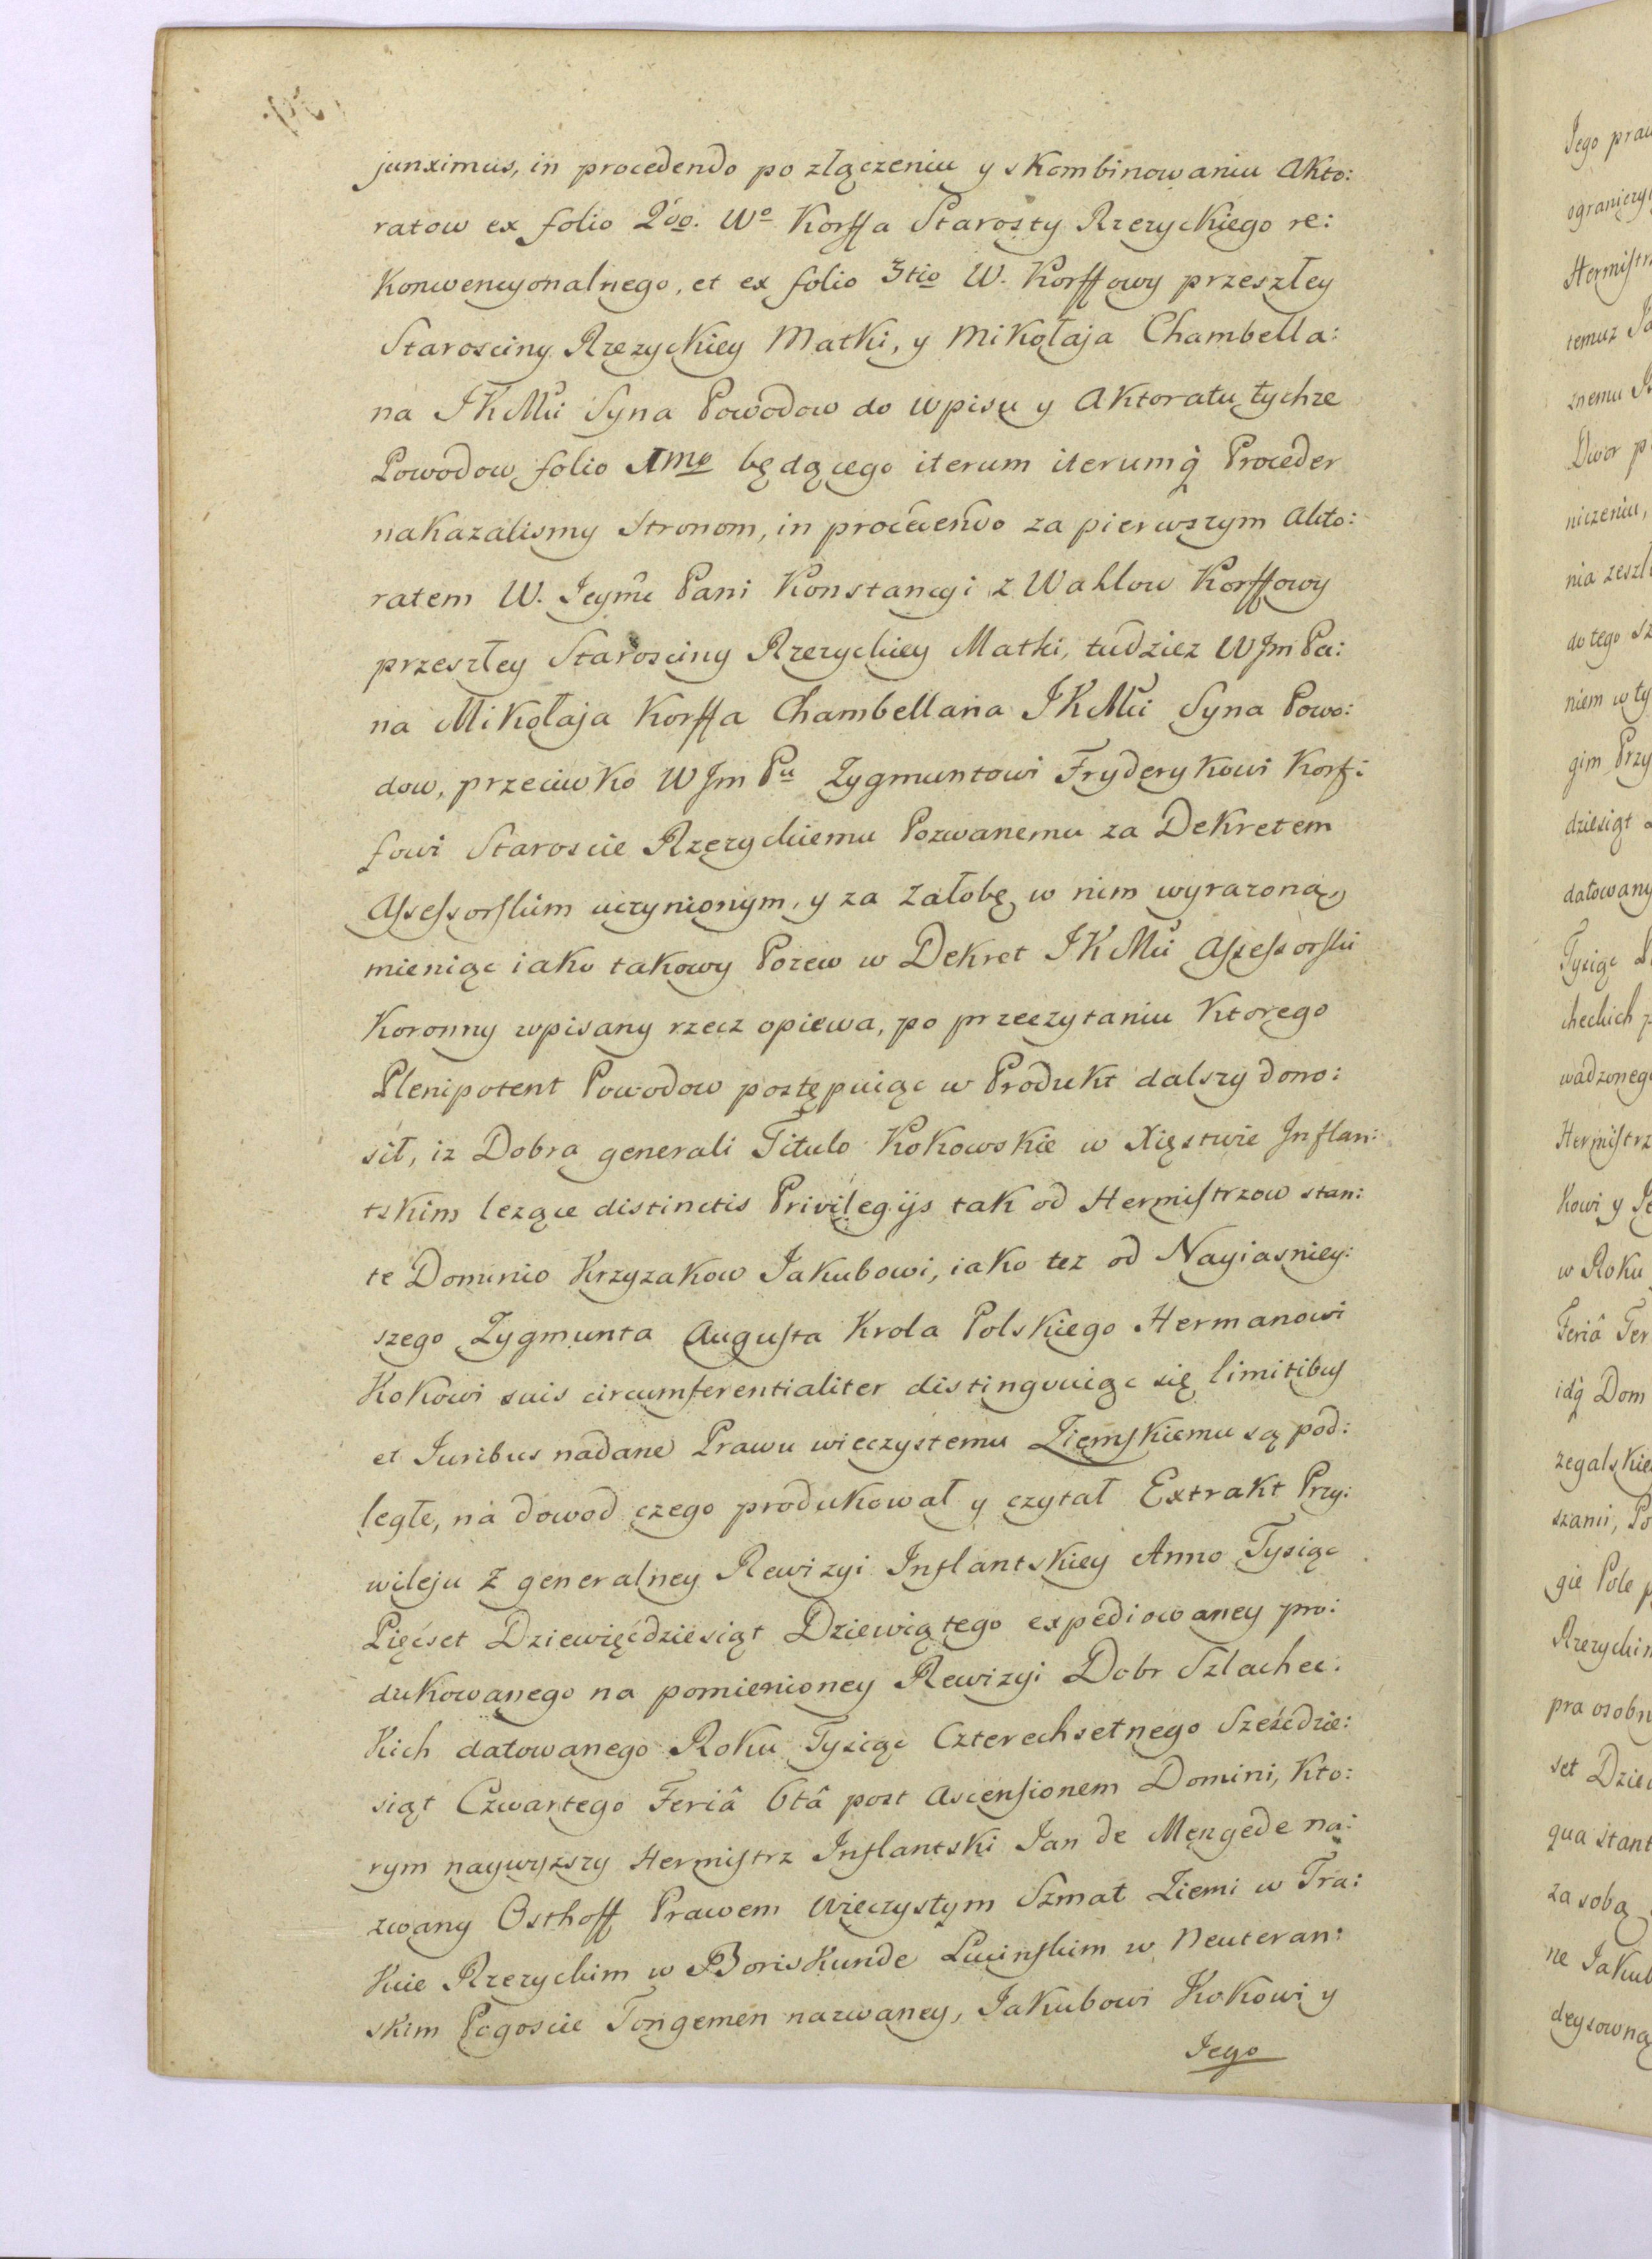 junximus, in procedendo po złączeniu y skombinowaniu Akto:
ratow ex folio 2do. Wo Korffa Starosty Rzezyckiego re:
konwencyonalnego, et ex folio 3tio W. Korffowy przeszłey
Starosciny Rzezyckiey Matki, y Mikołaja Chambella:
na JKMci Syna Powodow do wpisu y Aktoratu tychze
Powodow folio Imo będącego iterum iterumq Proceder
nakazalismy Stronom, in procedendo za pierwszym Akto:
ratem W. Jeymc Pani Konstancyi z Wahlow Korffowy
przeszłey Starosciny Rzezyckiey Matki, tudziez WJm Pa:
na Mikołaja Korffa Chambellana JKMci Syna Powo:
dow, przeciwko WJm Pu Zygmuntowi Fryderykowi Korf:
fowi Staroscie Rzezyckiemu Pozwanemu za Dekretem
Assessorskim uczynionym, y za Załobę w nim wyrazoną,
mieniąc iako takowy Pozew w Dekret JKMci Assessorski
Koronny wpisany rzecz opiewa, po przeczytaniu ktorego
Plenipotent Powodow postępuiąc w Produkt dalszy dono:
sił, iz Dobra generali Titulo Kokowskie w Xięstwie Inflan:
tskim lezące distinctis Privilegijs tak od Hermistrzow stan:
te Dominio Krzyzakow Jakubowi, iako tez od Nayiasniey:
szego Zygmunta Augusta Krola Polskiego Hermanowi
Kokowi suis circumferentialiter distinguuiąc się limitibus
et Juribus nadane Prawu wieczystemu Ziemskiemu są pod:
ległe, na dowod czego produkował y czytał Extrakt Przy:
wileju z generalney Rewizyi Inflantskiey Anno Tysiąc
Pięćset Dziewięćdziesiąt Dziewiątego expediowaney pro:
dukowanego na pomienioney Rewizyi Dobr Szlachec:
kich datowanego Roku Tysiąc Czterechsetnego Sześćdzie:
siąt Czwartego Feriâ 6tâ post Ascensionem Domini, kto:
rym naywyzszy Hermistrz Inflantski Jan de Mengede na:
zwany Osthoff Prawem Wieczystym Szmat Ziemi w Tra:
kcie Rzezyckim w Boriskunde Lucinskim w Neuteran:
skim Pogoscie Tongemen nazwaney, Jakubowi Kokowi y
Jego